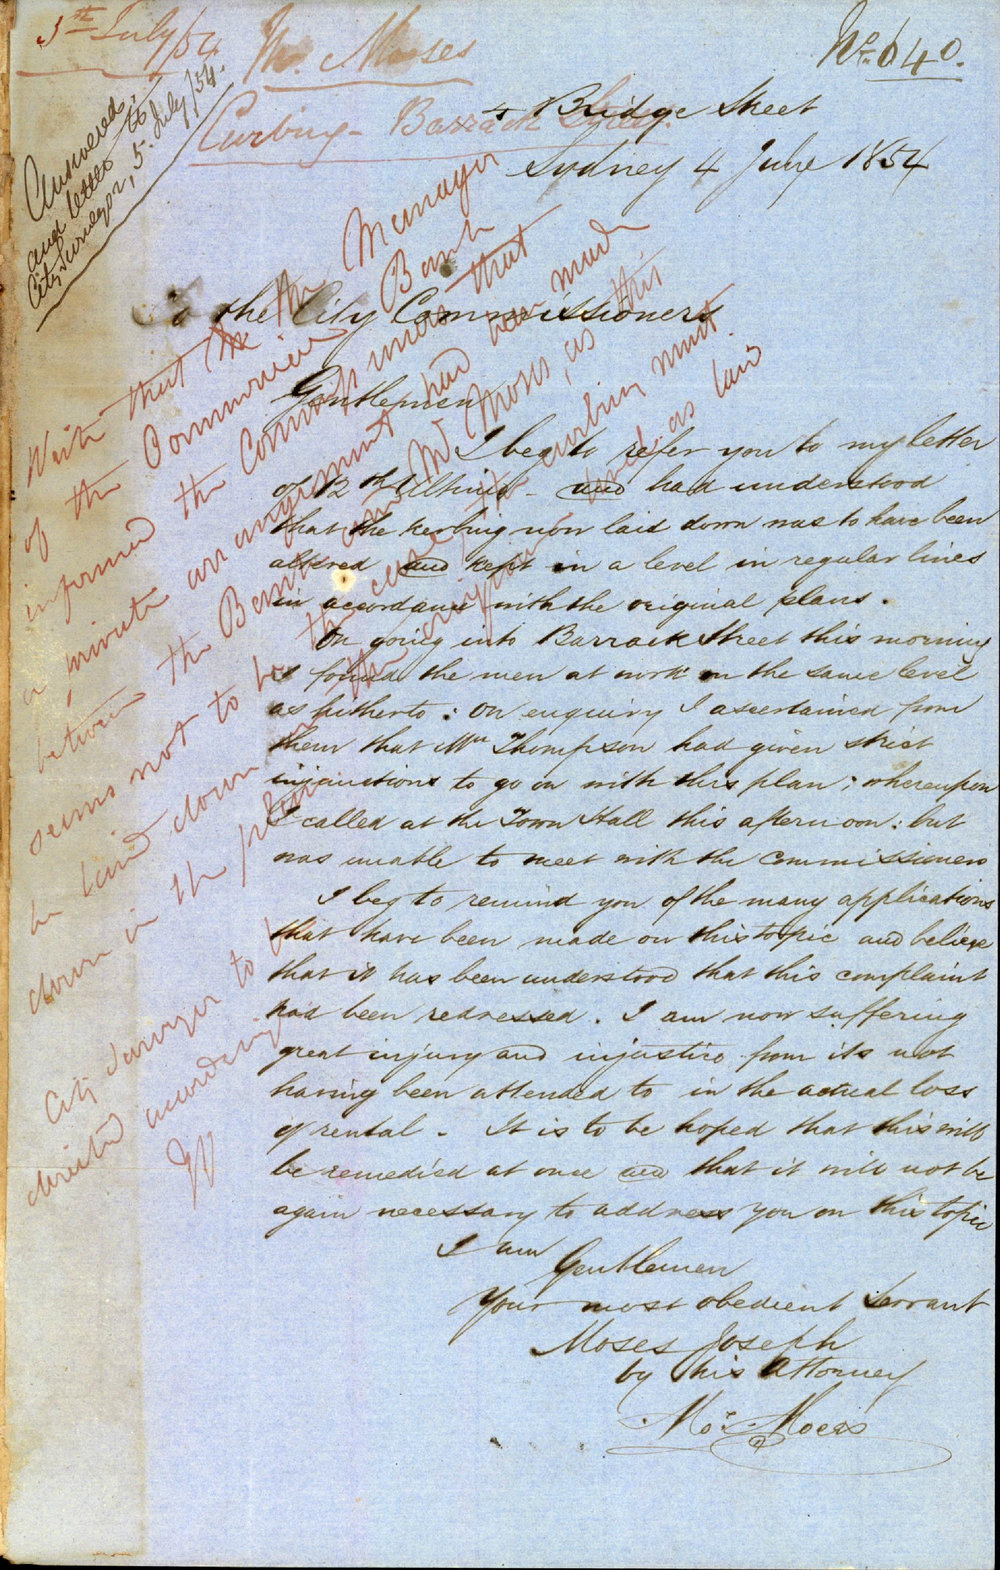 5th July/54.
Mr. Moses
No. 640.
Curbing - Barrack Street.
Answered,
and letter to
City Surveyor, 5. July/54.
4 Bridge Street
Sydney 4 July 1854
To the City Commissioners
Gentlemen
I beg to refer you to my letter
of 12th Ultimo - and had understood
that the kerbing now laid down was to have been
altered and kept in a level in regular lines
in accordance with the original plans.
On going into Barrack Street this morning
I found the men at work on the same level
as hitherto: On enquiry I ascertained from
them that Mr Thompson had given strict
injunctions to go on with this plan; whereupon
I called at the Town Hall this afternoon: but
was unable to meet with the Commissioners
I beg to remind you of the many applications
that have been made on this topic and believe
that it has been understood that this complaint
had been redressed. I am now suffering
great injury and injustice from its not
having been attended to in the actual loss
of rental. It is to be hoped that this will
be remedied at once and that it will not be
again necessary to address you on this topic
I am
Gentlemen
Your most obedient Servant
Moses Joseph
by his Attorney
Write that the Manager
of the Commercial Bank
informed the Commissioners that
a private arrangement had been made
between the Bank and Mr Moses, as this
seems not to be the case, the curbing must
be laid down in the original, as laid
down in the plan
City Surveyor to be
directed accordingly